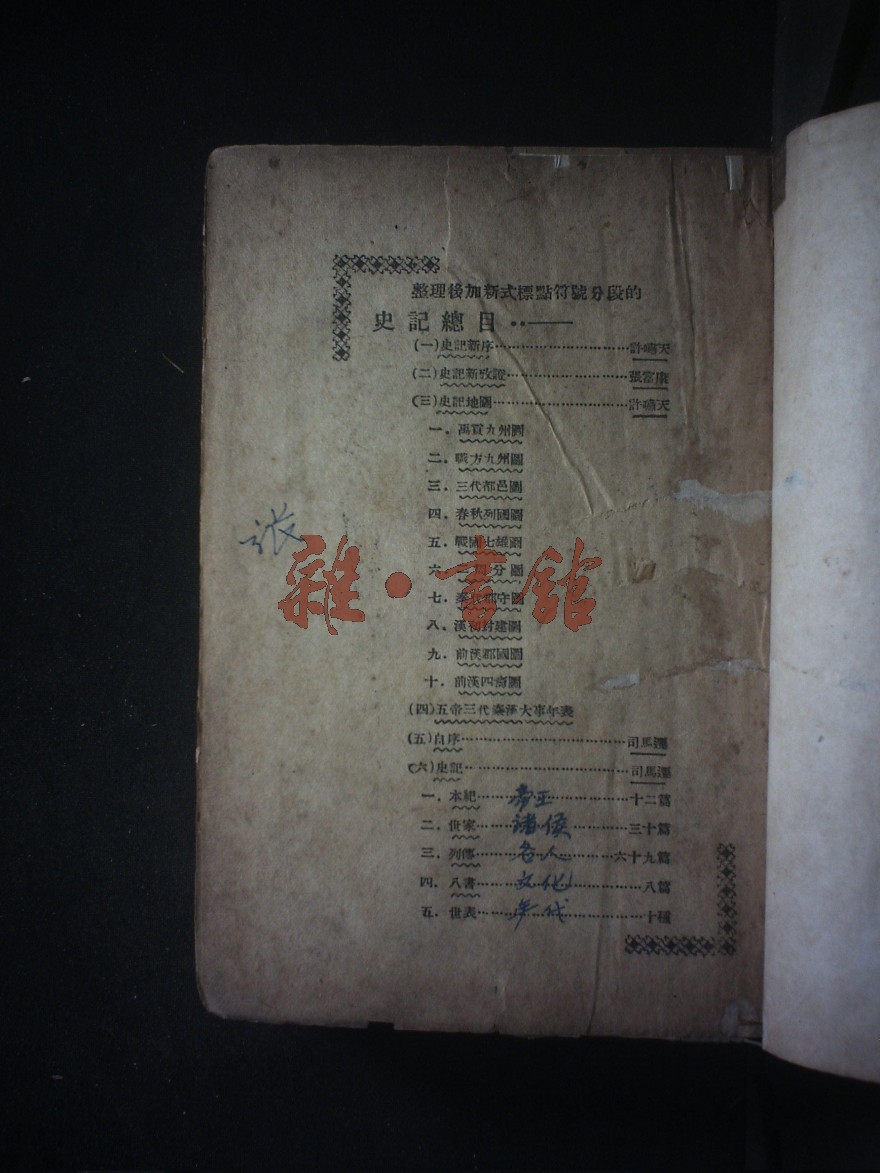 整理後加新式標點符號分段的
史記總目
(一)史記新序 許嘯天
(二)史記新攷證 張富康
(三)史記地圖 許嘯天
一．禹貢九州圖
二．職方九州圖
三．三代都邑圖
四．春秋列國圖
五．戰國七雄圖
張
六 分圖
七． 守圖
八．漢初封建圖
九．前漢郡國圖
十．前漢四裔圖
雜·書館
(四)五帝三代秦漢大事年表
(五)自序 司馬遷
(六)史記 司馬遷
一．本紀 帝王 十二篇
二．世家 諸侯 三十篇
三．列傳 各人 六十九篇
四．八書 文化 八篇
五．世表 年代 十種